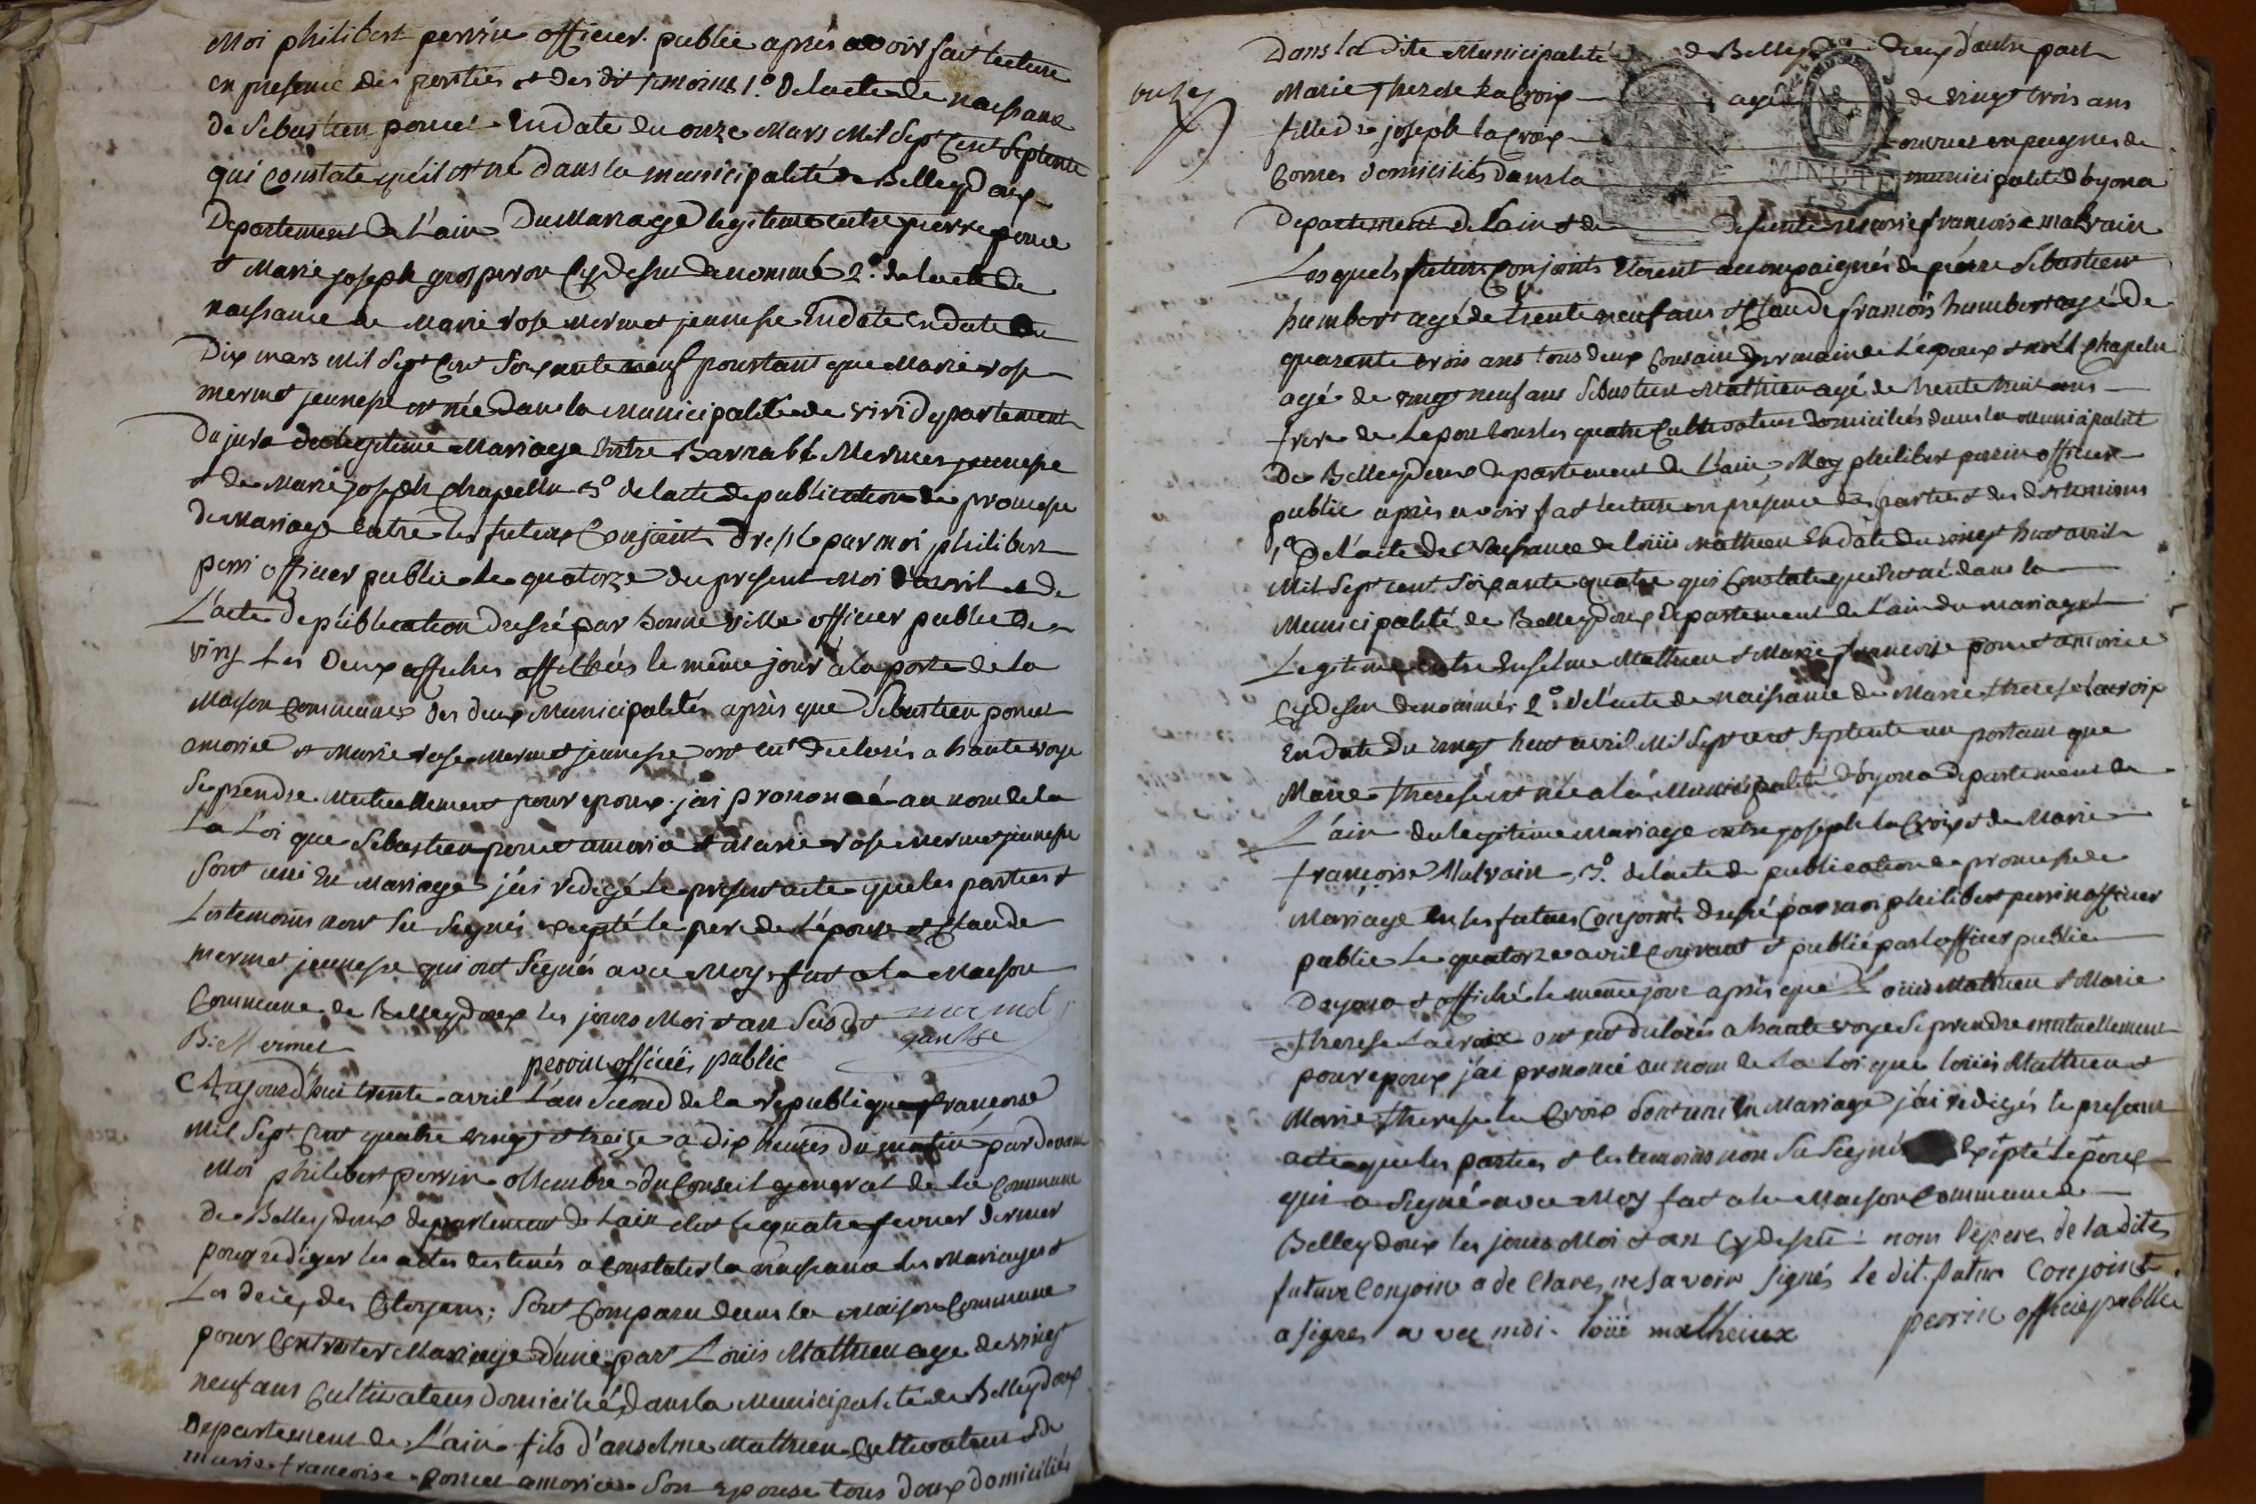 Moi philibert perrin officier public aprés avoir fait lecture
en presence des parties et des dit temoins 1.° de lacte de naissance
de Sebastien poncet En date du onze Mars Mil Sept Cent Septente
qui Constate quil est né dans la municipalité de Belleydoux
Departement de L'ain Du Mariage legitime entre pierre ponce
et Marie joseph grosperon Cy desus denommé 2.° de lacte de
naissance de Marie rose Mermet jeunesse En date En date du
Dix mars Mil Sept Cent Soixante neuf pourtant que Marie rose
mermet jeunesse est née dans la Municipalité de viri Departement
Du jura du legitime Mariage Entre Barnabé Mermet jeunesse
et de Marie joseph Chapellu 3° de lacte de publication de promesse
de Mariage Entre les futurs Conjoints dressé par moi philibert
perri officier public le quatorze du present Moi d'avril et de
L'acte de publication dressé par bonneville officier public de
viry Les Deux affiches affichées le même jour à la porte de la
Maison Commune des deux Municipalités après que Sebastien poncet
amorice et Marie rose Mermet jeunesse ont eut declarés a haute voye
Se prendre Mutuellement pour epoux. jai prononcé au nom de la
La Loi que Sebastien poncet amorice et Marie rose Mermet jeunesse
Sont uni En Mariage jai redigé le present acte que les parties et
Les temoins nont Su Signés exepté le pere de l'épouse et Claude
mermet jeunesse qui ont Signés avec Moy. fait a la Maison
Commune de Belleydoux les jours Moi et an Susdit
B: Mermet
perrin officié public
Aujourdhui trente avril L'an Second de la republique francoise
Mil Sept Cent quatre vingt et treize a dix heures du matin par devant
Moi philibert perrin Membre du Conseil general de la Commune
de Belleydoux departement de Lain elut le quatre fevrier dernier
pour rediger les actes destinés a Constater la naissance les Mariages et
Les decès des Citoyens; Sont Comparu dans la Maison Commune
pour Contracter Mariage d'une part Louis Mathieu age de vingt
neuf ans Cultivateur domicilié dans la Municipalité de Belleydoux
Departement de L'ain fils d'anselme Mathieu Cultivateur et de
marie francoise poncet amorice Son epouse tous deux domiciliés
Dans la dite Municipalité de Belleydoux d'autre part
Marie Therese La Croix agé de vingt trois ans
fille de joseph la Croix ouvrier en peignes de
Cornes domicilié dans la municipalité d'oyona
MINUTE
Departement de Lain et de defunte marie francoise malvain
Lesquels futurs Conjoints Etoient accompaignés de piérre Sebastien
humbert agé de trente neuf ans et Claude françois humbert agé de
quarente trois ans tous deux Cousain germain de Lépoux et noël Chapelu
agé de vingt neuf ans Sebastien Mathieu agé de trente huit ans
frere de Lepou tous les quatre Cultivateur domiciliés dans la municipalité
De Belleydoux departement de L'ain, Moy philibert perrin officier
public après avoir fait lecture en presence des parties et des dit temoins
1° De l'acte de Naissance de louis Mathieu En date du vingt huit avril
Mil Sept cent Soixante quatre qui Constate quil est né dans la
Municipalité de Belleydoux Departement de L'ain du mariage
Legitime entre Enselme Mathieu et Marie francoise poncet amorice
Cydesu denommés 2.° de l'acte de naissance de Marie therese lacroix
En date du vingt huit avril Mil Sept cent Septente un portant que
Marie therese est née a la Municipalité d'oyona departement de
L'ain du legitime Mariage entre joseph la Croix et de Marie
francoise Malvain 3.° de lacte de publication de promesse de
Mariage En les futurs Conjoints dressé par moi philibert perrin officier
public Le quatorze avril Courant et publié par lofficier public
Doyona et affiché le meme jour après que Louis Mathieu et Marie
therese Lacroix ont eut declarés a haute voye Se prendre mutuellement
pour epoux jai prononcé au nom de la Loi que louis Mathieu et
Marie therese la Croix Sont uni En Mariage j'ai redigés le present
acte que les parties et les temoins non Su Signé Exépté lépoux
qui a Signé avec Moy fait a la Maison Commune de
Belleydoux les jours Moi et an Cy desus non le pere de la dite
future Conjoint a de Clarer ne Savoir Signés le dit futur Conjoint
a signes avec moi. loüi matheiux perrin officié public